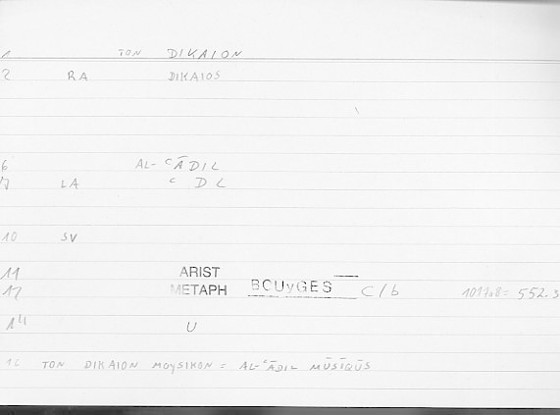 1 TON DIKAION
2 RA DIKAIOS
6 AL-ʿĀDIL
7 LA ʿDL
10 SV
11 ARIST
12 METAPH BOUyGES C/b 552.3
14 U
TON DIKAION MOYSIKON = AL-ʿĀDIL MŪSĪQŪS